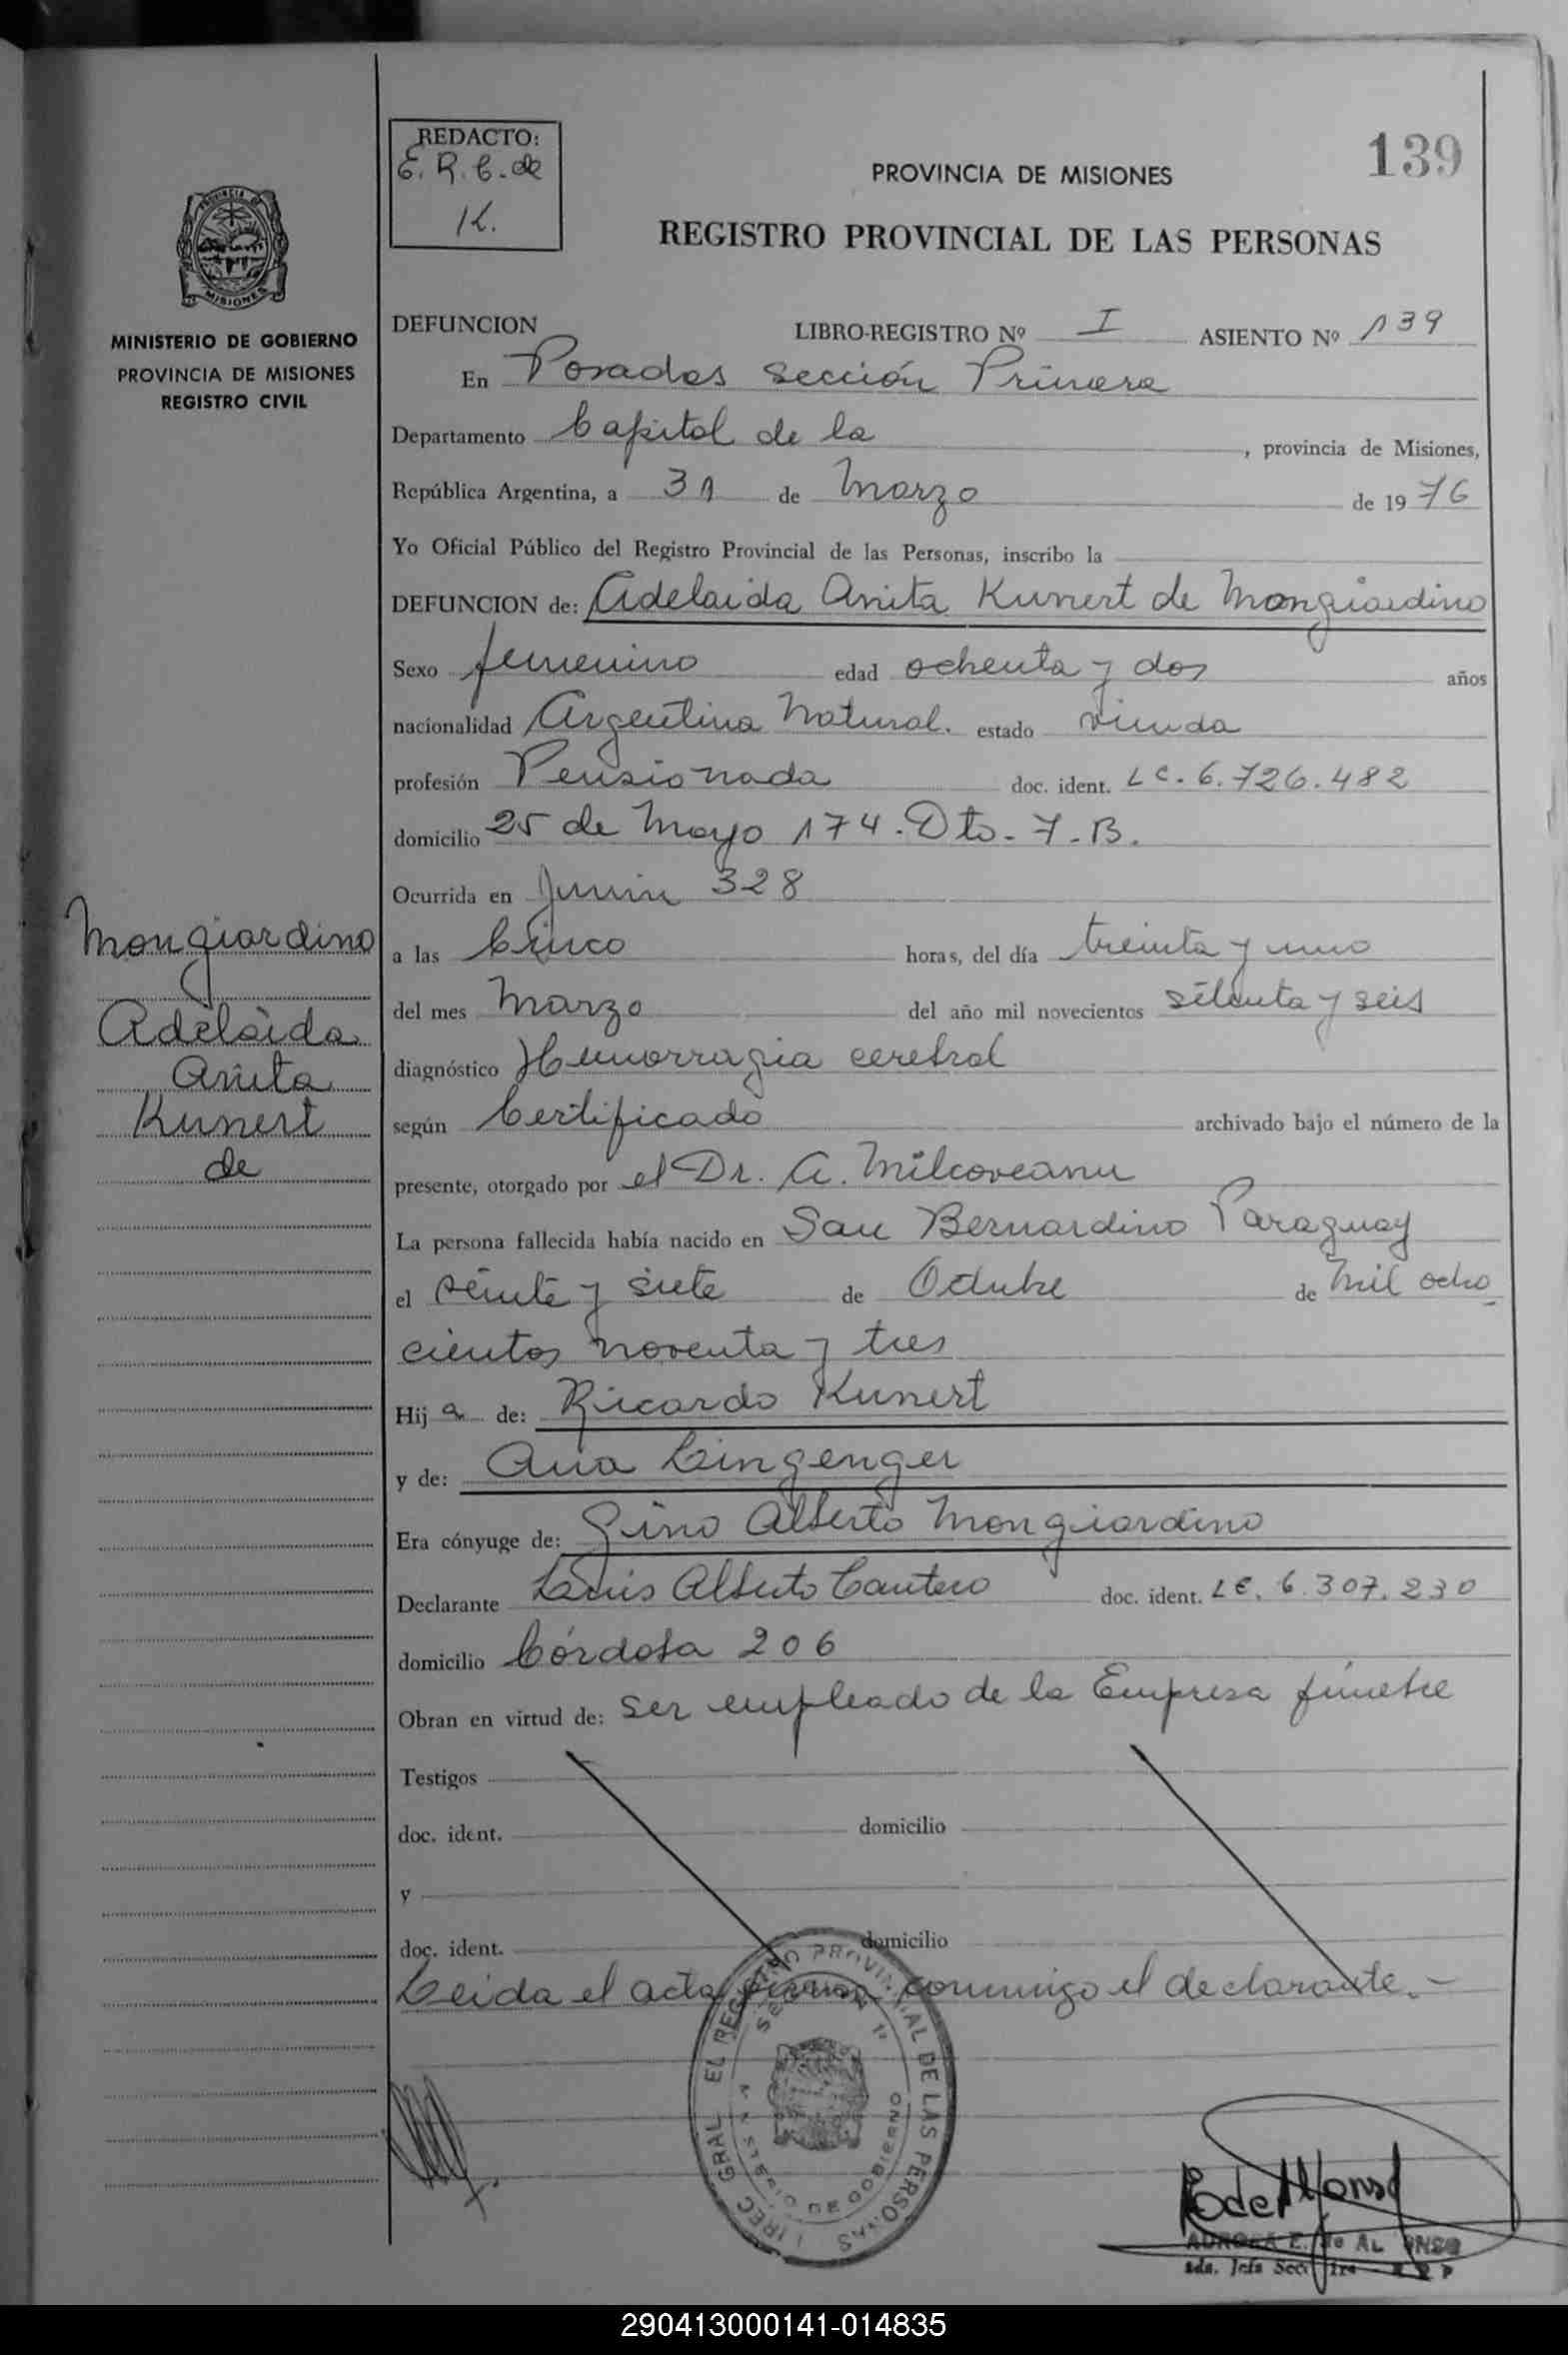 REDACTO:
E. R. C. de
K.
139
PROVINCIA DE MISIONES
REGISTRO PROVINCIAL DE LAS PERSONAS
PROVINCIA DE
MISIONES
MINISTERIO DE GOBIERNO
PROVINCIA DE MISIONES
REGISTRO CIVIL
DEFUNCION LIBRO-REGISTRO Nº I ASIENTO Nº 139
En Posadas Sección Primera
Departamento Capital de la , provincia de Misiones,
República Argentina, a 31 de Marzo de 1976
Yo Oficial Público del Registro Provincial de las Personas, inscribo la
DEFUNCION de: Adelaida Anita Kunert de Mongiardino
Sexo femenino edad ochenta y dos años
nacionalidad Argentina Natural. estado viuda
profesión Pensionada doc. ident. LC. 6.726.482
domicilio 25 de Mayo 174. Dto. 7. B.
Ocurrida en Junin 328
a las Cinco horas, del día treinta y uno
del mes Marzo del año mil novecientos setenta y seis
diagnóstico Hemorragia cerebral
según Certificado archivado bajo el número de la
presente, otorgado por el Dr. A. Milcoveanu
La persona fallecida había nacido en San Bernardino Paraguay
el veinte y siete de Octubre de mil ocho
cientos noventa y tres
Hij a de: Ricardo Kunert
y de: Ana Lingenger
Era cónyuge de: Gino Alberto Mongiardino
Declarante Luis Alberto Cantero doc. ident. LE. 6.307.230
domicilio Córdoba 206
Obran en virtud de: ser empleado de la Empresa fúnebre
Testigos
doc. ident. domicilio
y
doc. ident. domicilio
Leida el acta firman conmigo el declarante.-
Mongiardino
Adelaida
Anita
Kunert
de
GRAL EL REGISTRO PROVINCIAL DE LAS PERSONAS
SECCION 1ª
MINISTERIO DE GOBIERNO
AURORA E. de ALFONSO
290413000141-014835